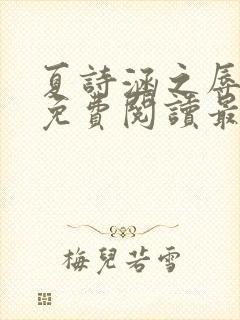 夏詩涵之辱
免費閱讀最
梅兒若雪